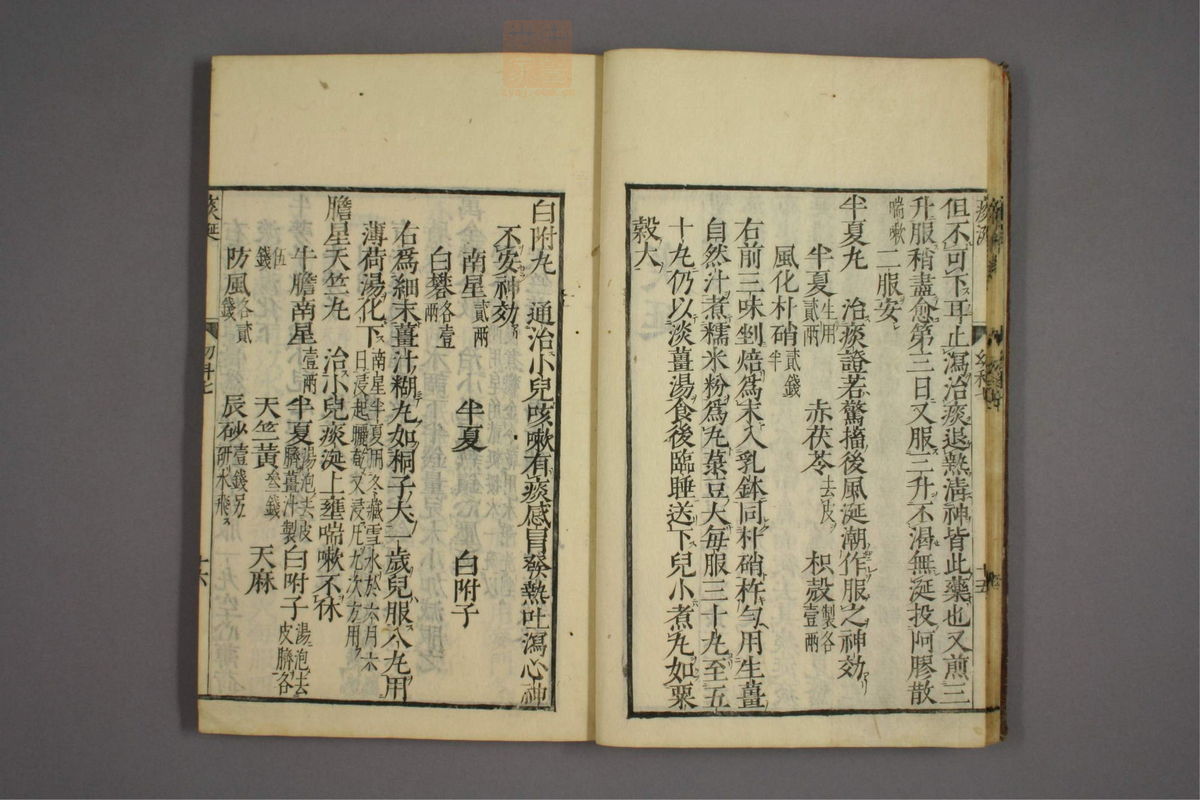 但不可下耳止瀉治痰退熱清神皆此藥也又煎三
升服稍盡愈第三日又服三升不渴無涎投阿膠散
喘嗽二服安
半夏丸 治痰證若驚搐後風涎潮作服之神效
半夏生用貳兩 赤茯苓去皮 枳殼製各壹兩
風化朴硝貳錢半
右前三味剉焙爲末入乳鉢同朴硝杵勻用生薑
自然汁煮糯米粉爲丸菉豆大每服三十丸至五
十丸仍以淡薑湯食後臨睡送下兒小煮丸如粟
穀大
白附丸 通治小兒咳嗽有痰感冒發熱吐瀉心神
不安神効
南星貳兩 半夏 白附子
白礬各壹兩
右爲細末薑汁糊丸如桐子大一歲兒服八丸用
薄荷湯化下南星半夏用冬藏雪水於六月六日浸起曬菴又浸凡九次方用
膽星天竺丸 治小兒痰涎上壅喘嗽不休
牛膽南星壹兩 半夏湯泡去皮臍薑汁製 白附子湯泡去皮臍各伍錢
天竺黃叁錢 天麻
防風各貳錢 辰砂壹錢另研水飛
痰涎 十六